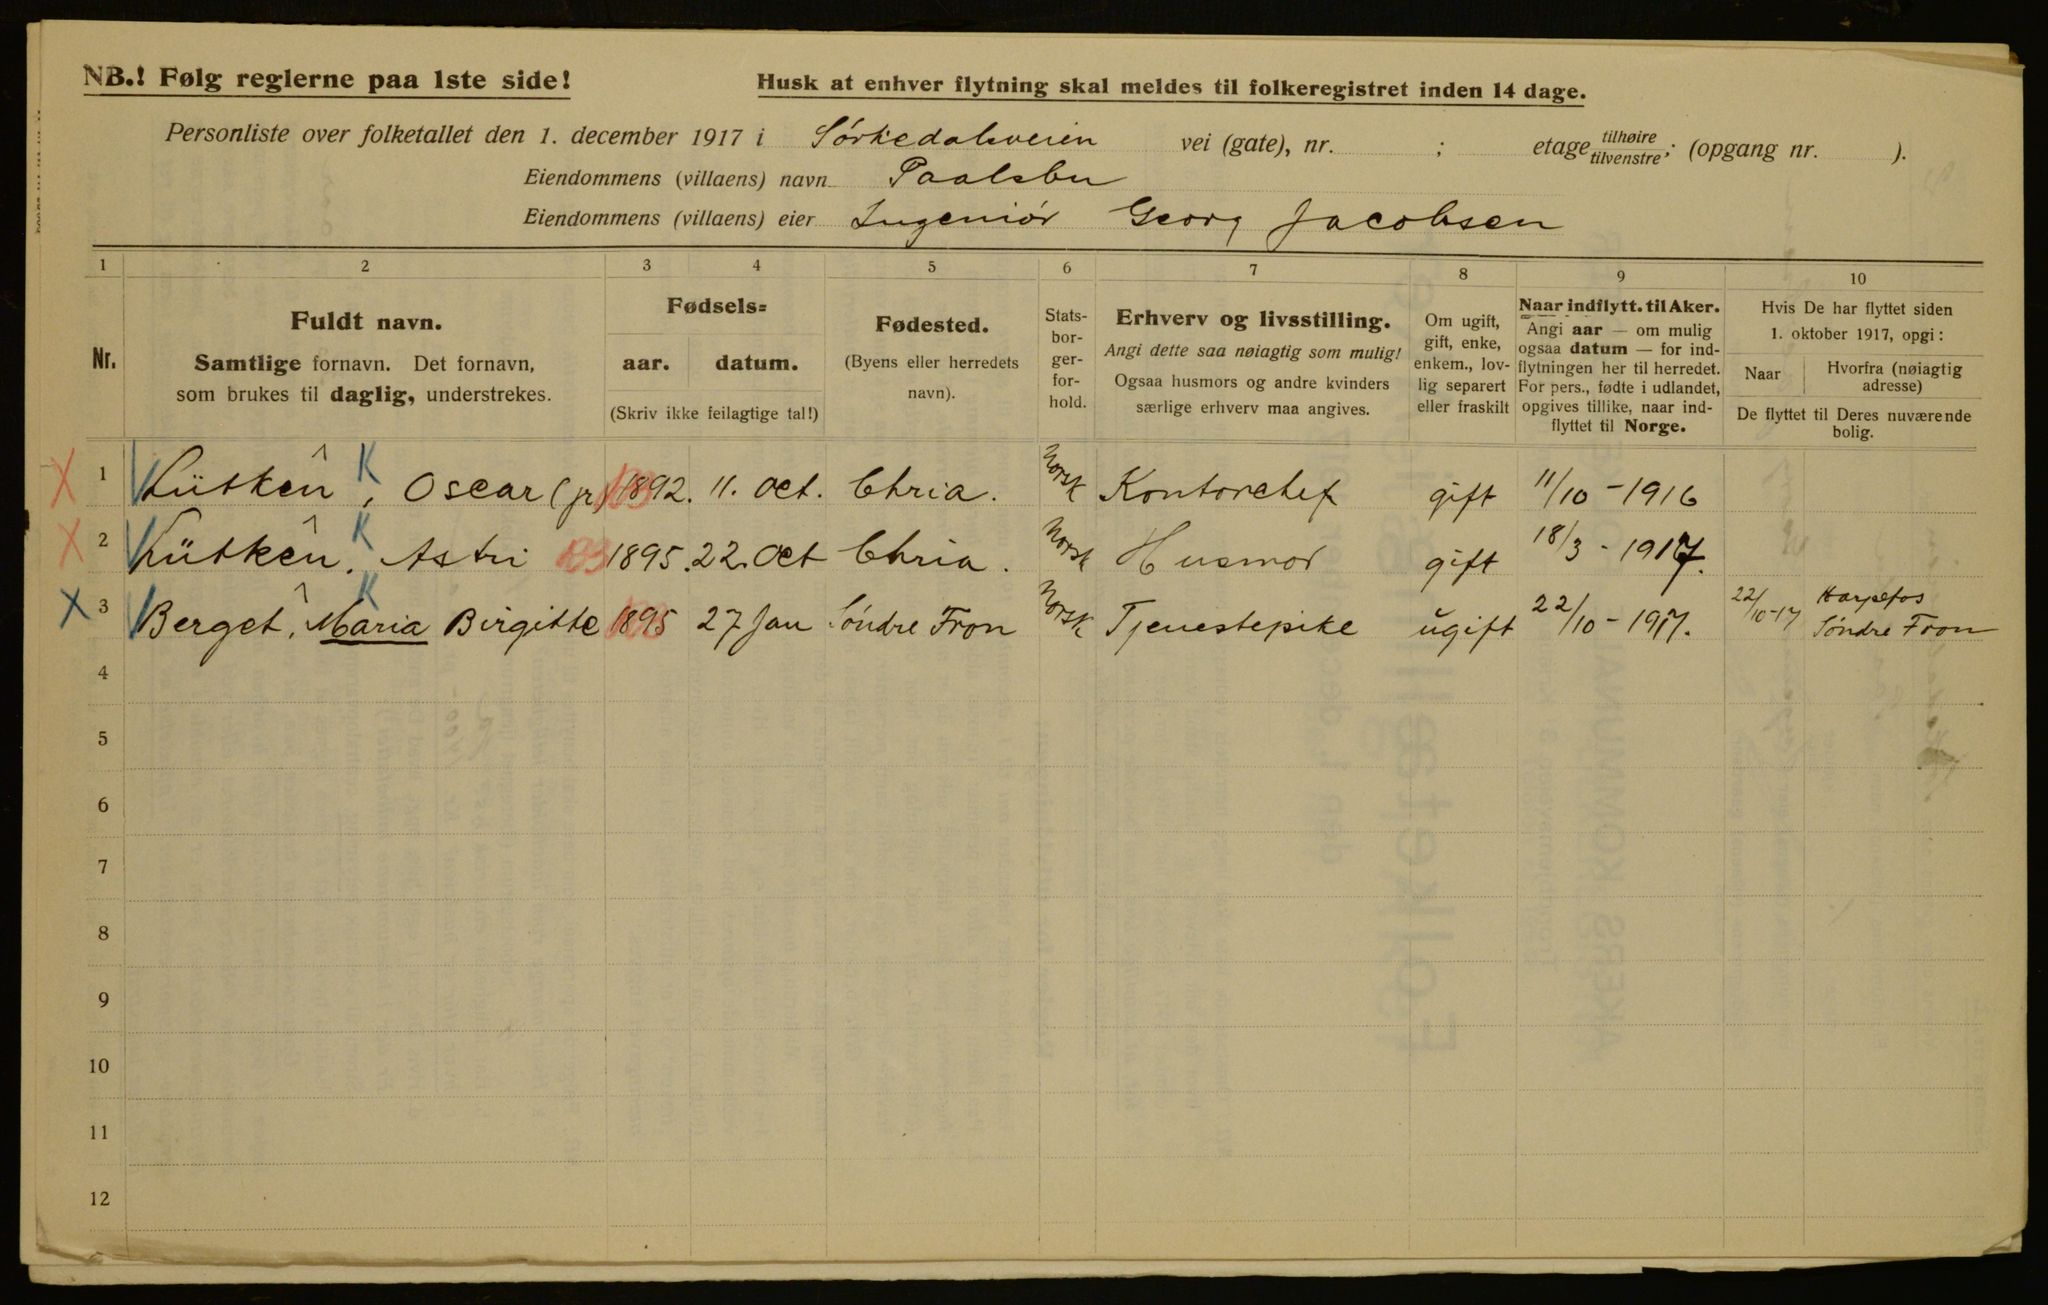 NB.! Følg reglerne paa 1ste side!
Husk at enhver flytning skal meldes til folkeregistret inden 14 dage.
Personliste over folketallet den 1. december 1917 i Sörkedalsveien vei (gate), nr. ; etage tilhøire/tilvenstre; (opgang nr. ).
Eiendommens (villaens) navn Paalsbu
Eiendommens (villaens) eier Ingeniör Georg Jacobsen
1 2 3 4 5 6 7 8 9 10
Nr.
Fuldt navn.
Samtlige fornavn. Det fornavn,
som brukes til daglig, understrekes.
Fødsels=
aar. datum.
(Skriv ikke feilagtige tal!)
Fødested.
(Byens eller herredets
navn).
Stats-
bor-
ger-
for-
hold.
Erhverv og livsstilling.
Angi dette saa nøiagtig som mulig!
Ogsaa husmors og andre kvinders
særlige erhverv maa angives.
Om ugift,
gift, enke,
enkem., lov-
lig separert
eller fraskilt
Naar indflytt. til Aker.
Angi aar — om mulig
ogsaa datum — for ind-
flytningen her til herredet.
For pers., fødte i udlandet,
opgives tillike, naar ind-
flyttet til Norge.
Hvis De har flyttet siden
1. oktober 1917, opgi:
Naar
Hvorfra (nøiagtig
adresse)
De flyttet til Deres nuværende
bolig.
X 1 Lütken K, Oscar (jr) 1892. 11. Oct. Chria. Norsk Kontorchef gift 11/10 - 1916
X 2 Lütken K. Astri 1895. 22. Oct Chria. Norsk Husmor gift 18/3 - 1917.
X 3 Berget, K Maria Birgitte 1895 27 Jan Söndre Fron Norsk Tjenestepike ugift 22/10 - 1917. 22/10-17 Harpefos
Söndre Fron
4
5
6
7
8
9
10
11
12